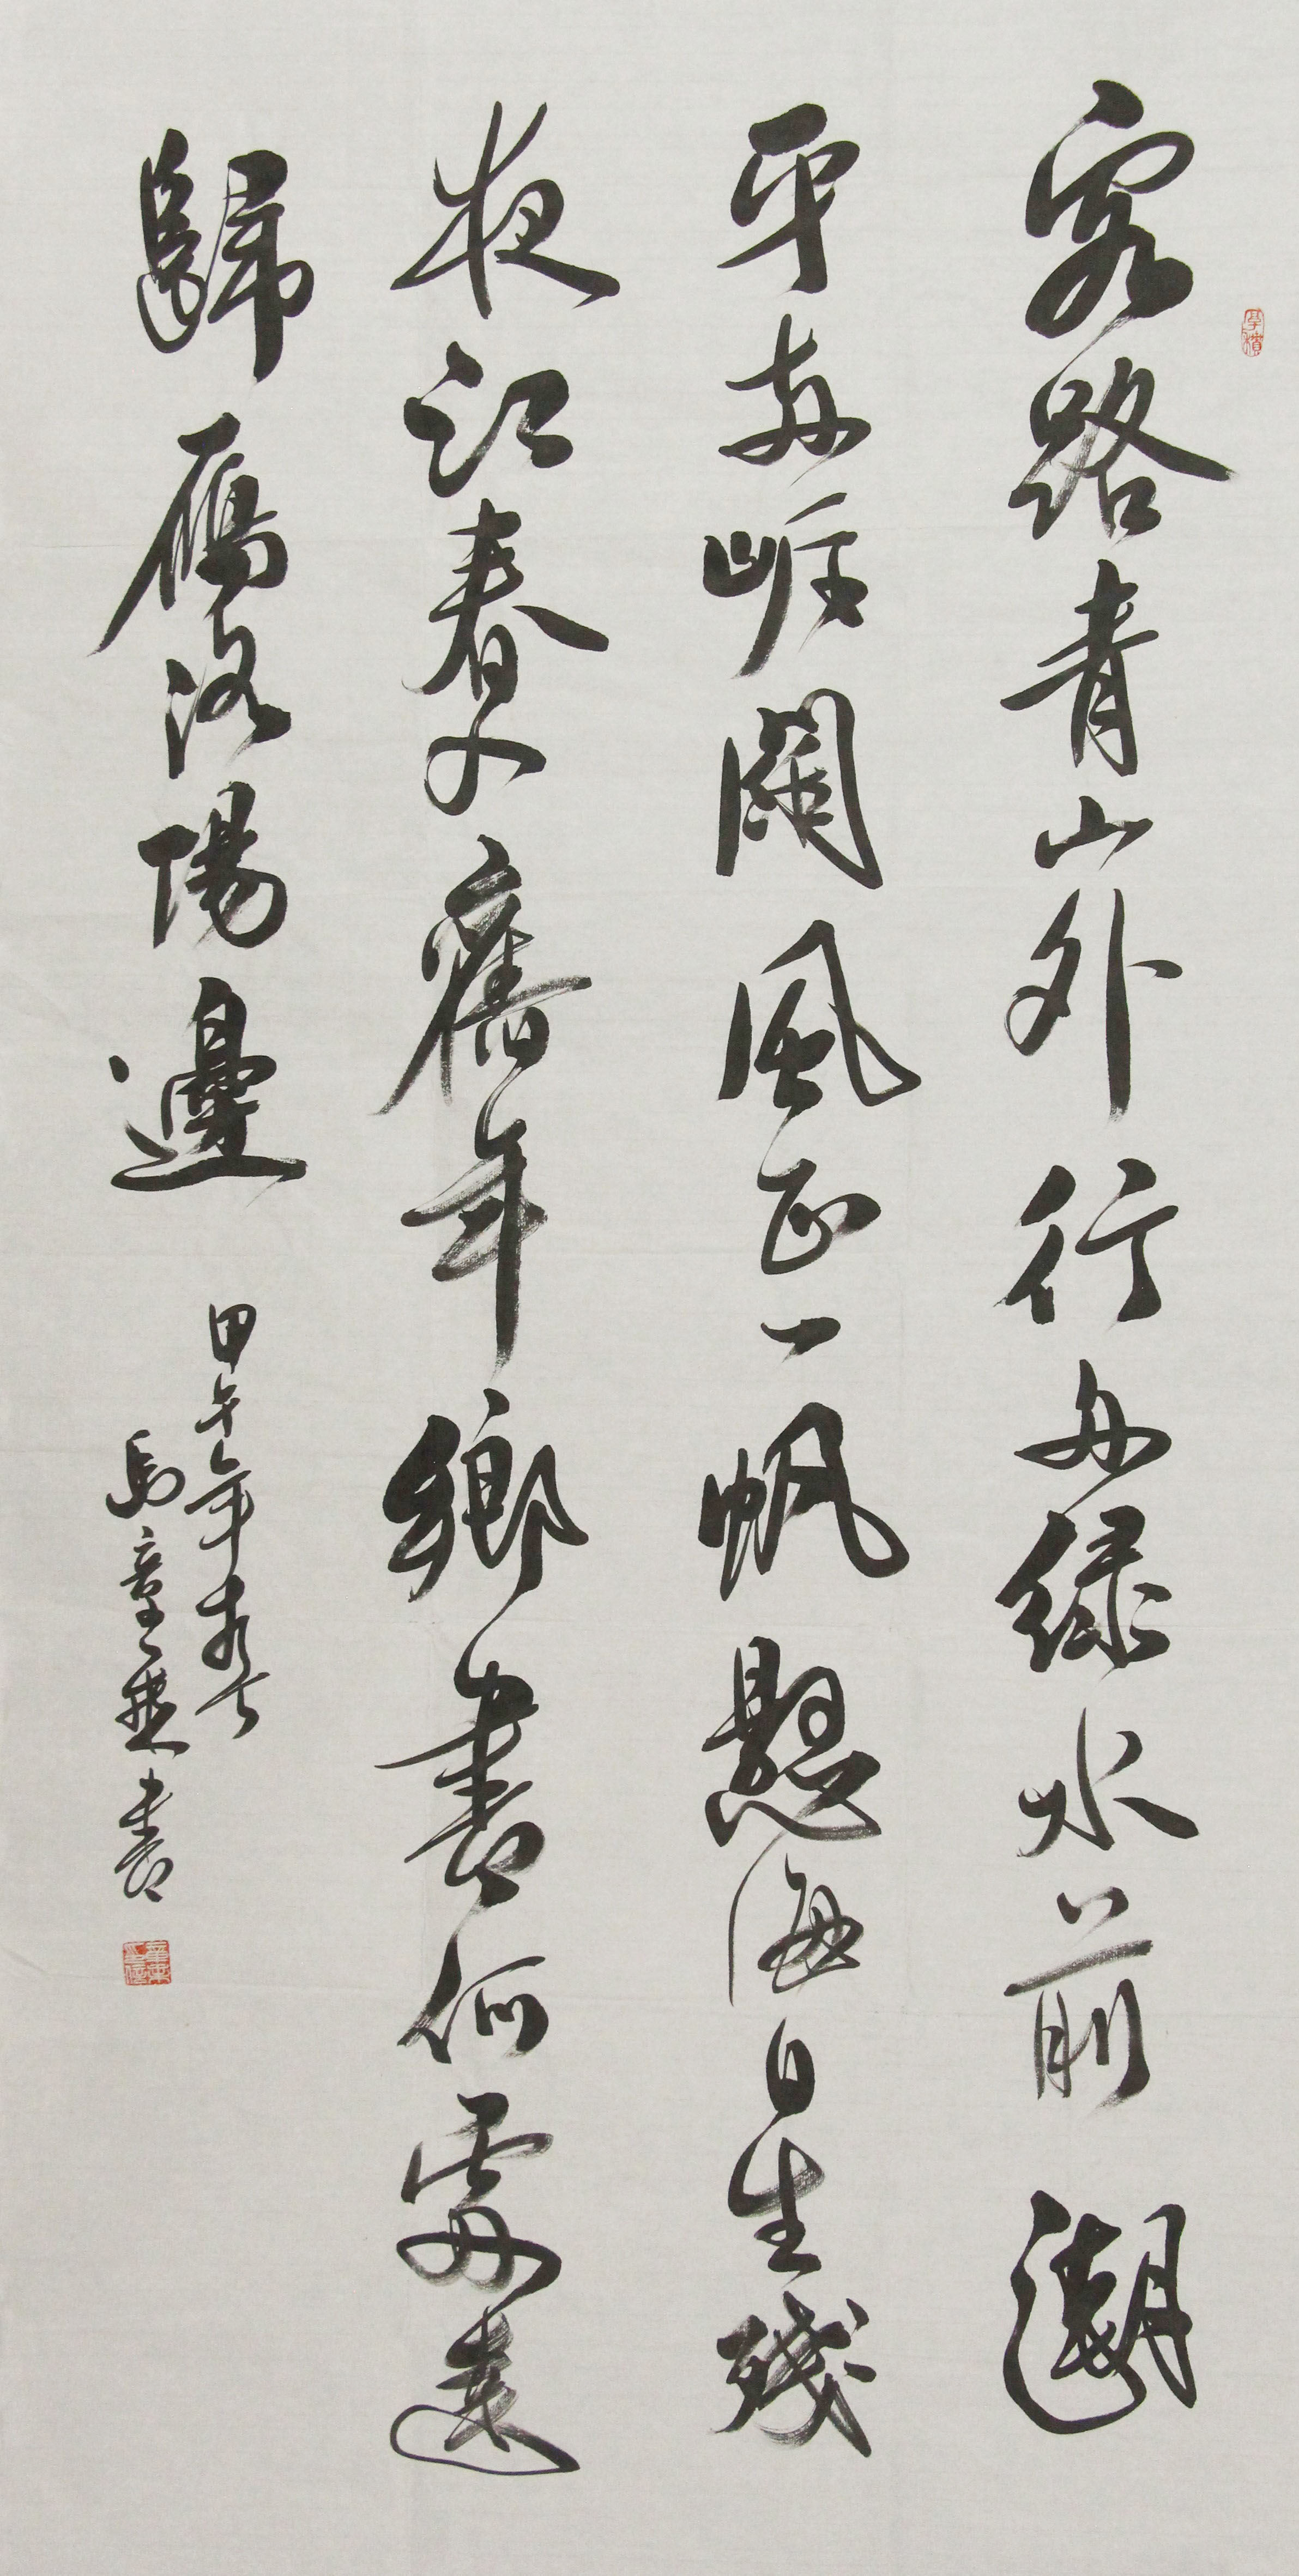 客路青山外行舟綠水前潮
平兩岸闊風正一帆懸海日生殘
夜江春入舊年鄉書何處達
歸雁洛陽邊
甲午年
書